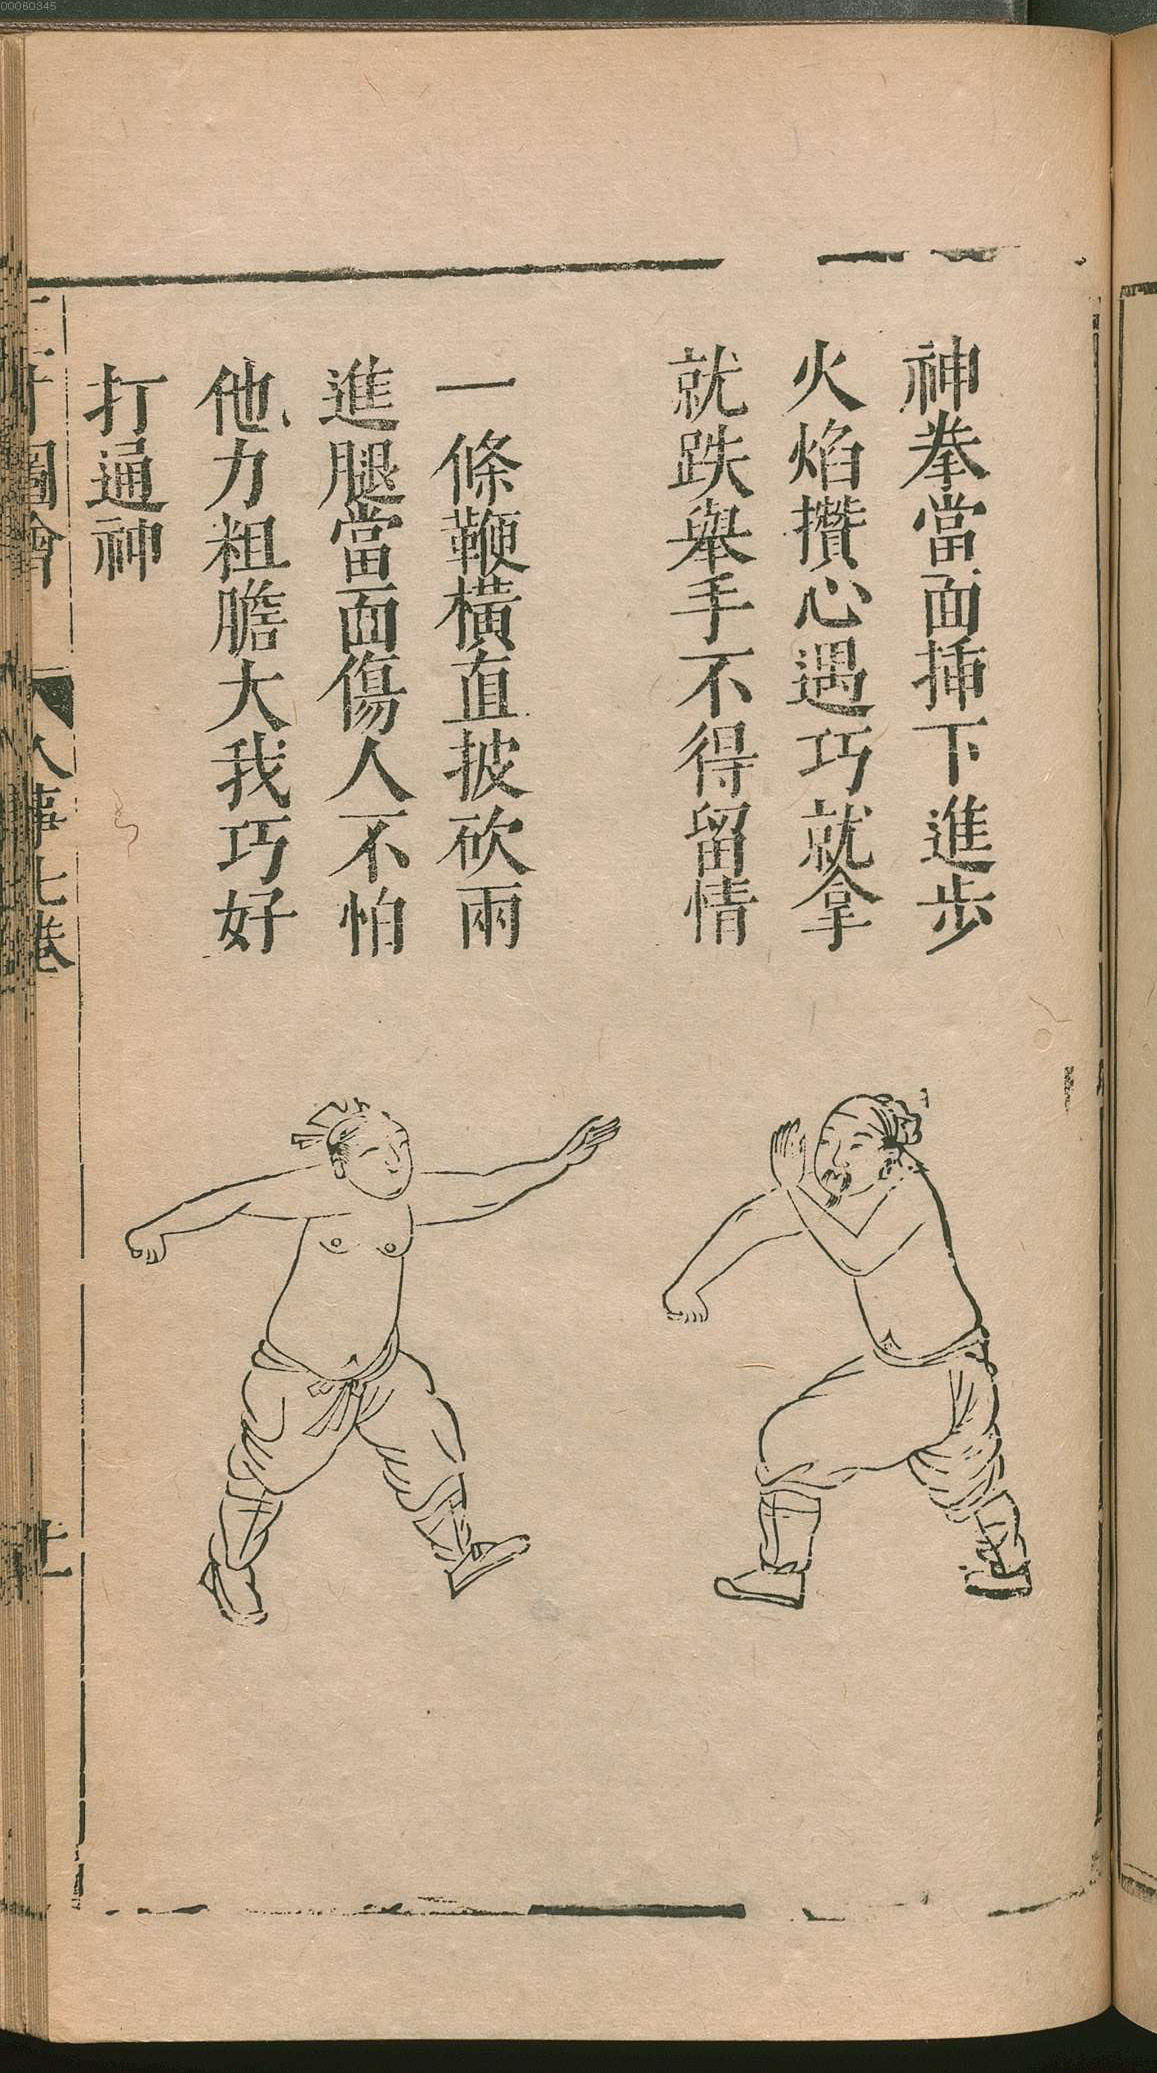 00060345
神拳當面揷下進步
火焰攢心遇巧就拿
就跌舉手不得留情
一條鞭橫直披砍兩
進腿當面傷人不怕
他力粗膽大我巧好
打通神
圖會
人事七卷